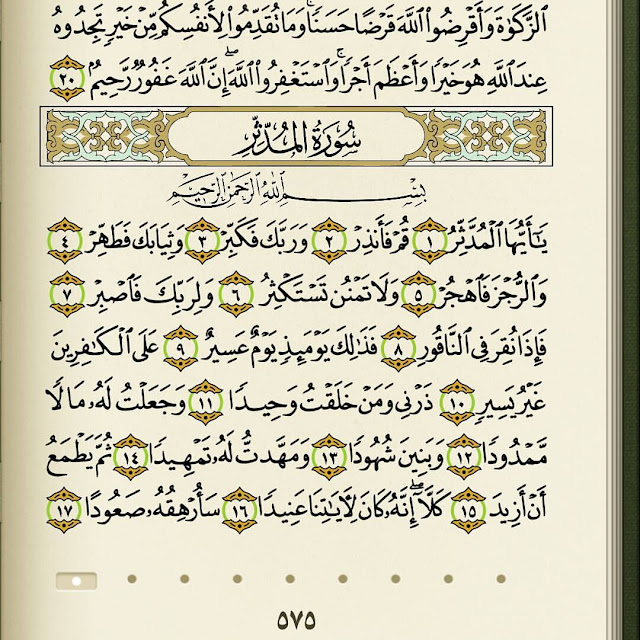 ٱلزَّكَوٰةَ وَأَقْرِضُوا۟ ٱللَّهَ قَرْضًا حَسَنًا ۚ وَمَا تُقَدِّمُوا۟ لِأَنفُسِكُم مِّنْ خَيْرٍ تَجِدُوهُ
عِندَ ٱللَّهِ هُوَ خَيْرًا وَأَعْظَمَ أَجْرًا ۚ وَٱسْتَغْفِرُوا۟ ٱللَّهَ ۖ إِنَّ ٱللَّهَ غَفُورٌ رَّحِيمٌۢ ٢٠
سُورَةُ المُدَّثِّرِ
بِسْمِ ٱللَّهِ ٱلرَّحْمَٰنِ ٱلرَّحِيمِ
يَٰٓأَيُّهَا ٱلْمُدَّثِّرُ ١ قُمْ فَأَنذِرْ ٢ وَرَبَّكَ فَكَبِّرْ ٣ وَثِيَابَكَ فَطَهِّرْ ٤
وَٱلرُّجْزَ فَٱهْجُرْ ٥ وَلَا تَمْنُن تَسْتَكْثِرُ ٦ وَلِرَبِّكَ فَٱصْبِرْ ٧
فَإِذَا نُقِرَ فِى ٱلنَّاقُورِ ٨ فَذَٰلِكَ يَوْمَئِذٍ يَوْمٌ عَسِيرٌ ٩ عَلَى ٱلْكَٰفِرِينَ
غَيْرُ يَسِيرٍ ١٠ ذَرْنِى وَمَنْ خَلَقْتُ وَحِيدًا ١١ وَجَعَلْتُ لَهُۥ مَالًا
مَّمْدُودًا ١٢ وَبَنِينَ شُهُودًا ١٣ وَمَهَّدتُّ لَهُۥ تَمْهِيدًا ١٤ ثُمَّ يَطْمَعُ
أَنْ أَزِيدَ ١٥ كَلَّآ ۖ إِنَّهُۥ كَانَ لِءَايَٰتِنَا عَنِيدًا ١٦ سَأُرْهِقُهُۥ صَعُودًا ١٧
٥٧٥